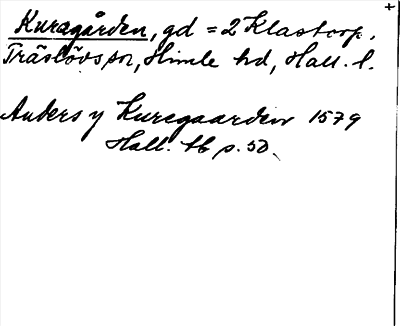 Kuragården, gd = 2 Klastorp,
Träslövs sn, Himle hd, Hall. l.
Anders y Kuregaarden 1579
Hall. tb p. 50.